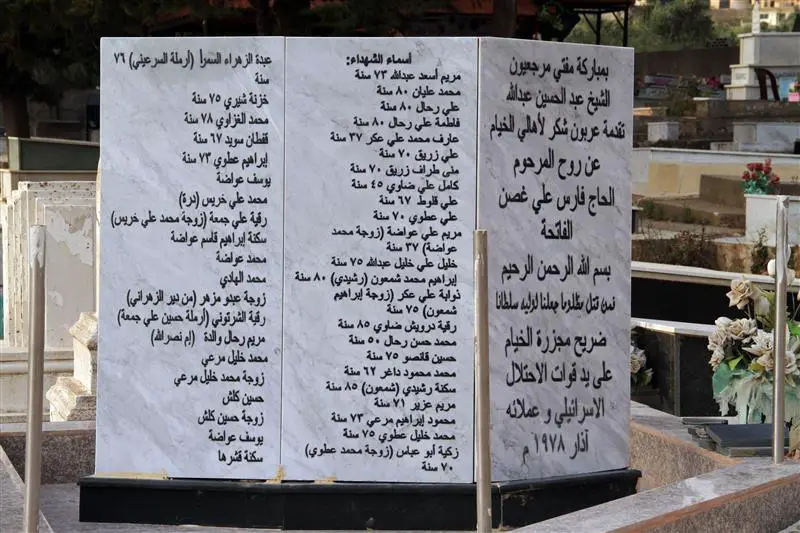 بمباركة مفتي مرجعيون
الشيخ عبد الحسين عبدالله
تقدمة عربون شكر لأهالي الخيام
عن روح المرحوم
الحاج فارس علي غصن
الفاتحة
بسم الله الرحمن الرحيم
فمن قتل مظلوما جعلنا لوليه سلطانا
ضريح مجزرة الخيام
على يد قوات الاحتلال
الاسرائيلي و عملائه
آذار ١٩٧٨ م
أسماء الشهداء:
مريم أسعد عبدالله ٧٣ سنة
محمد عليان ٨٠ سنة
علي رحال ٨٠ سنة
فاطمة علي رحال ٨٠ سنة
عارف محمد علي عكر ٣٧ سنة
علي زريق ٧٠ سنة
منى طراف زريق ٧٠ سنة
كامل علي ضاوي ٤٥ سنة
علي قلوط ٦٧ سنة
علي عطوي ٧٠ سنة
مريم علي عواضة (زوجة محمد
عواضة) ٣٧ سنة
خليل علي خليل عبدالله ٧٥ سنة
إبراهيم محمد شمعون (رشيدي) ٨٠ سنة
ذوابة علي عكر (زوجة إبراهيم
شمعون) ٧٥ سنة
رقية درويش ضاوي ٨٥ سنة
محمد حسن رحال ٥٠ سنة
حسين قانصو ٧٥ سنة
محمد محمود داغر ٦٢ سنة
سكنة رشيدي (شمعون) ٨٥ سنة
مريم عزير ٧١ سنة
محمود إبراهيم مرعي ٧٣ سنة
محمد خليل عطوي ٧٥ سنة
زكية أبو عباس (زوجة محمد عطوي)
٧٠ سنة
عبدة الزهراء السمرا (أرملة السرعيني) ٧٦
سنة
خزنة شيري ٧٥ سنة
محمد الغزاوي ٧٨ سنة
قفطان سويد ٦٧ سنة
إبراهيم عطوي ٧٣ سنة
يوسف عواضة
محمد علي خريس (درة)
رقية علي جمعة (زوجة محمد علي خريس)
سكنة إبراهيم قاسم عواضة
محمد عواضة
محمد الهادي
زوجة عبدو مزهر (من دير الزهراني)
رقية الشرتوني (أرملة حسين علي جمعة)
مريم رحال والدة (إم نصرالله)
محمد خليل مرعي
زوجة محمد خليل مرعي
حسين كلش
زوجة حسين كلش
يوسف عواضة
سكنة قشرها